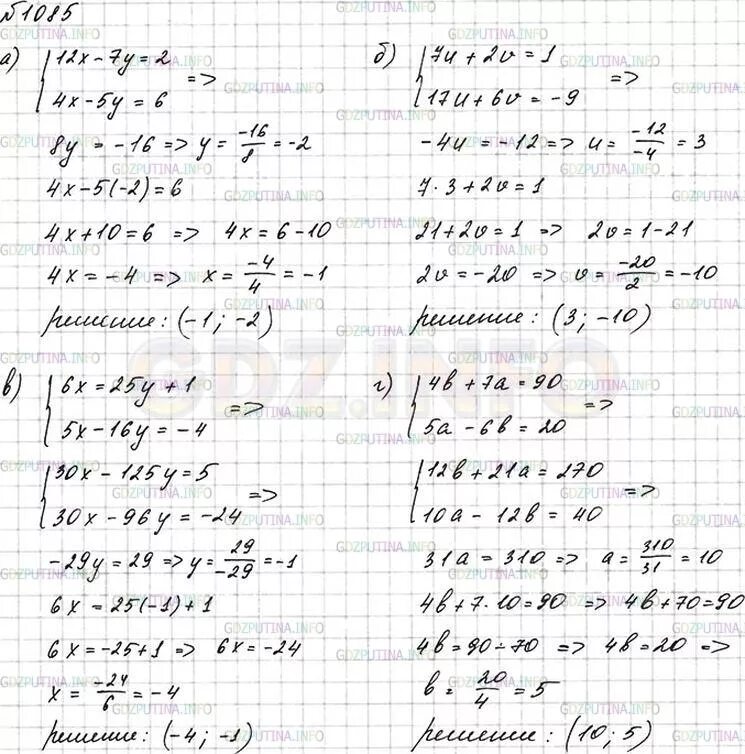 №1085
а) { 12x - 7y = 2
4x - 5y = 6 =>
8y = -16 => y = -16/8 = -2
4x - 5(-2) = 6
4x + 10 = 6 => 4x = 6 - 10
4x = -4 => x = -4/4 = -1
решение: (-1; -2)
б) { 7u + 2v = 1
17u + 6v = -9 =>
-4u = -12 => u = -12/-4 = 3
7·3 + 2v = 1
21 + 2v = 1 => 2v = 1 - 21
2v = -20 => v = -20/2 = -10
решение: (3; -10)
в) { 6x = 25y + 1
5x - 16y = -4 =>
{ 30x - 125y = 5
30x - 96y = -24 =>
-29y = 29 => y = 29/-29 = -1
6x = 25(-1) + 1
6x = -25 + 1 => 6x = -24
x = -24/6 = -4
решение: (-4; -1)
г) { 4b + 7a = 90
5a - 6b = 20 =>
{ 12b + 21a = 270
10a - 12b = 40 =>
31a = 310 => a = 310/31 = 10
4b + 7·10 = 90 => 4b + 70 = 90
4b = 90 - 70 => 4b = 20 =>
b = 20/4 = 5
решение: (10; 5)
GDZ.INFO
GDZPUTINA.INFO